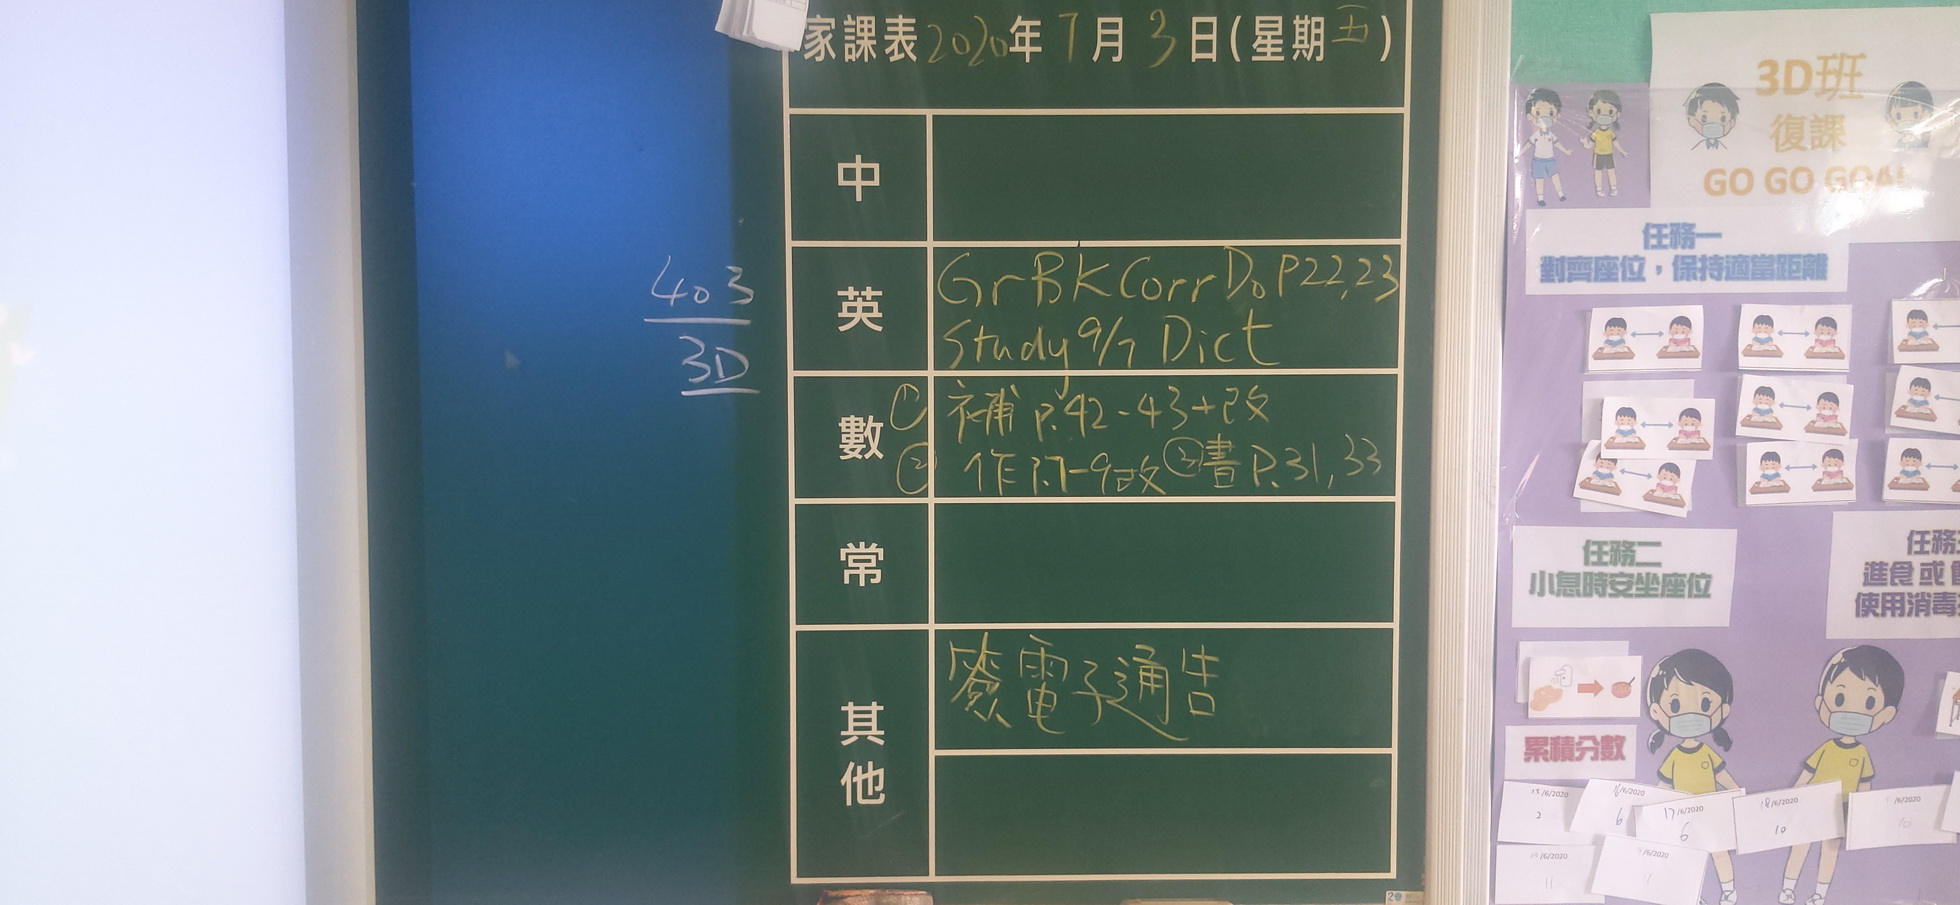 家課表2020年7月3日(星期五)
中
英
GrBK Corr Do P22,23
Study 9/7 Dict
數
① 補 P.42-43+改
② 作P.7-9改 ③書P.31,33
常
其他
簽電子通告
403
3D
3D班
復課
GO GO GOAL
任務一
對齊座位，保持適當距離
任務二
小息時安坐座位
進食或
使用消毒
累積分數
15/6/2020
2
6
17/6/2020
6
18/6/2020
10
/6/2020
10
11